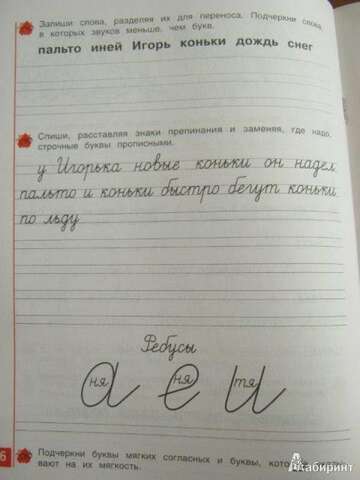 Запиши слова, разделяя их для переноса. Подчеркни слова,
в которых звуков меньше, чем букв.
пальто иней Игорь коньки дождь снег
Спиши, расставляя знаки препинания и заменяя, где надо,
строчные буквы прописными.
у Игорька новые коньки он надел
пальто и коньки быстро бегут коньки
по льду
Ребусы
а ня е ня и тя
6
Подчеркни буквы мягких согласных и буквы, которые
вают на их мягкость.
Лабиринт